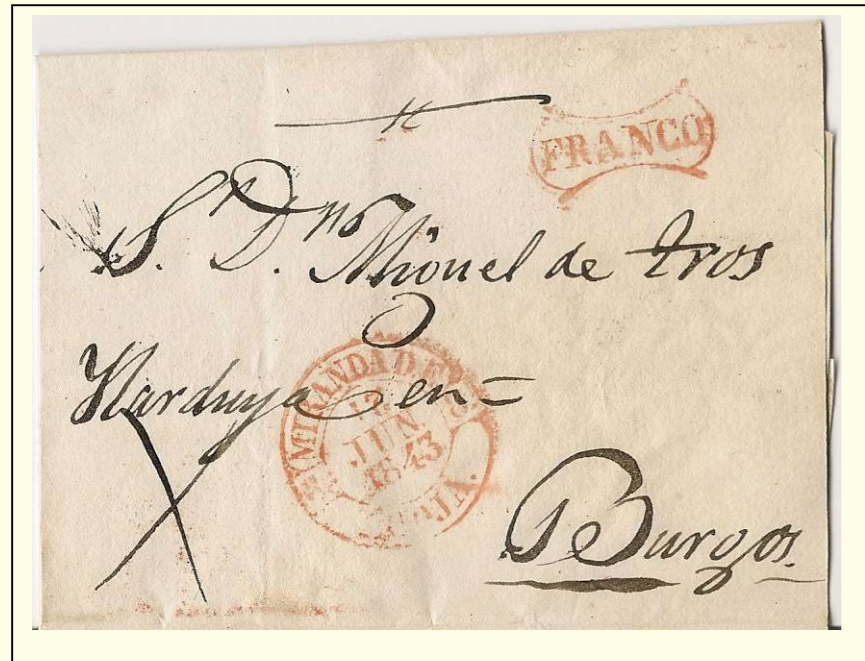 FRANCO
S.r D.n Miguel de Eros
Narduya en=
MIRANDA D E
JUN
1843
Burgos.